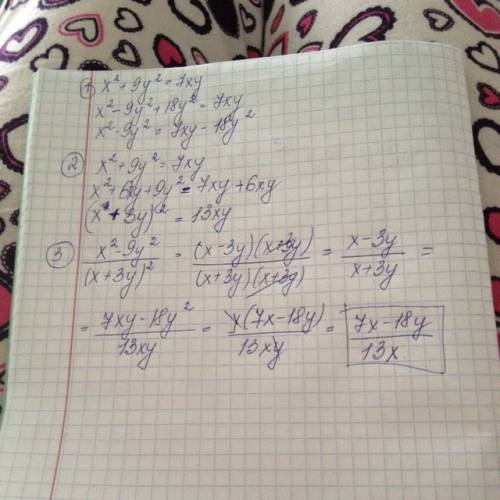 ① x² + 9y² = 7xy
x² - 9y² + 18y² = 7xy
x² - 9y² = 7xy - 18y²
② x² + 9y² = 7xy
x² + 6xy + 9y² = 7xy + 6xy
(x + 3y)² = 13xy
③ (x² - 9y²)/(x + 3y)² = ((x - 3y)(x + 3y))/((x + 3y)(x + 3y)) = (x - 3y)/(x + 3y) =
= (7xy - 18y²)/(13xy) = (y(7x - 18y))/(13xy) = (7x - 18y)/(13x)